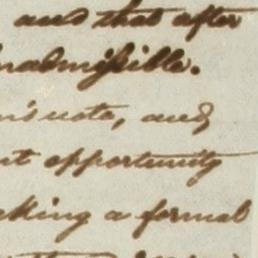 and that after
nadmissible.
n's note, and
nt opportunity
king a formal